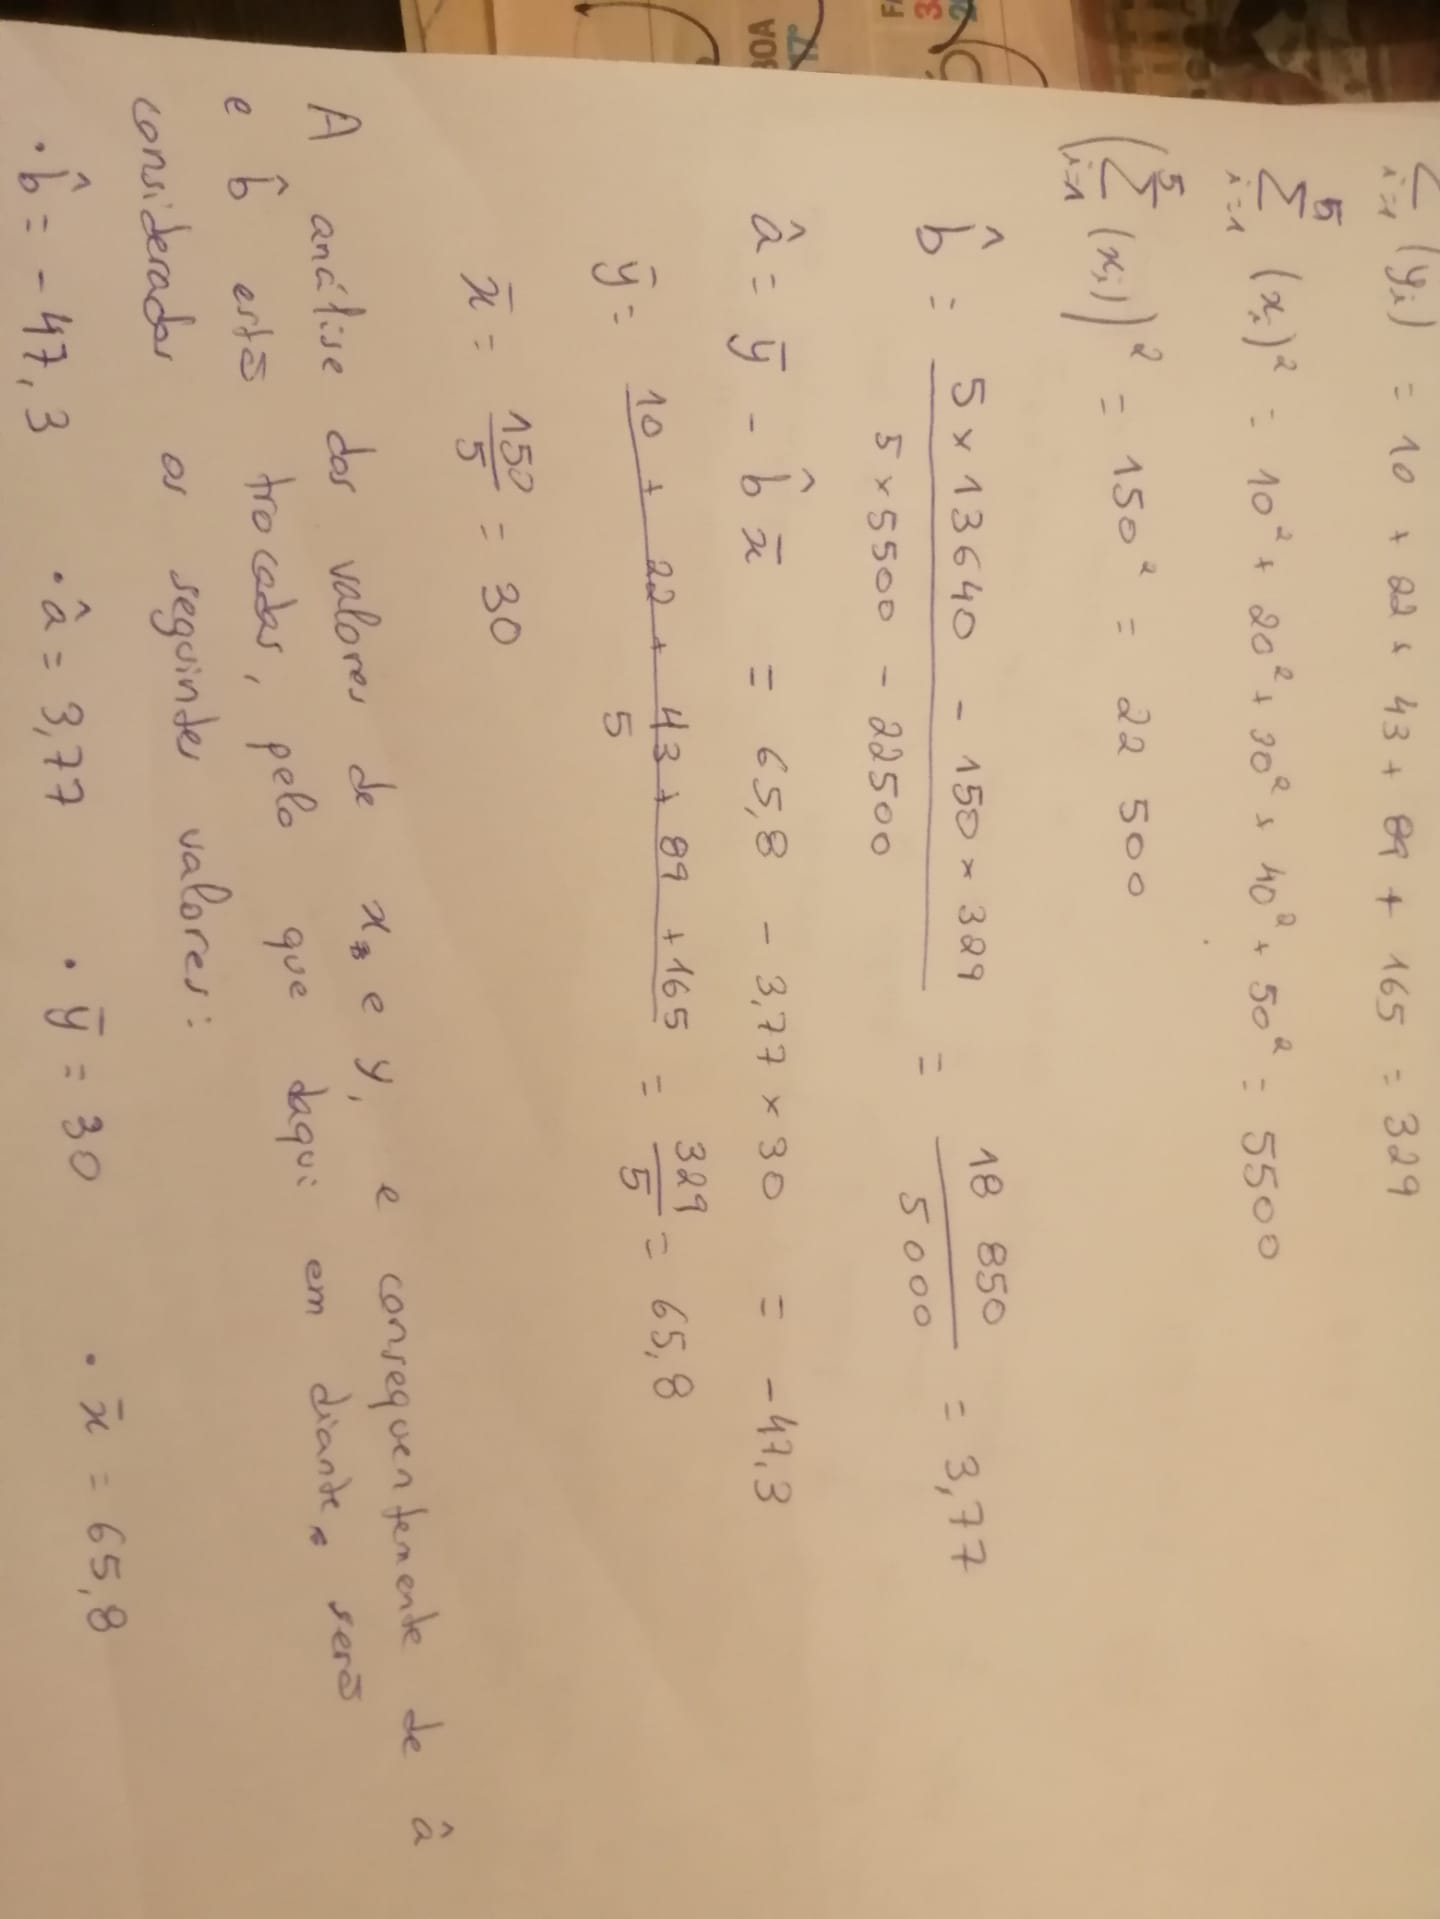 ∑ i=1 (yi) = 10 + 22 + 43 + 89 + 165 = 329
5 ∑ i=1 (xi)² = 10² + 20² + 30² + 40² + 50² = 5500
(5 ∑ i=1 (xi))² = 150² = 22 500
b̂ = (5 × 13640 - 150 × 329) / (5 × 5500 - 22500) = 18 850 / 5000 = 3,77
â = ȳ - b̂ x̄ = 65,8 - 3,77 × 30 = -47,3
ȳ = (10 + 22 + 43 + 89 + 165) / 5 = 329 / 5 = 65,8
x̄ = 150 / 5 = 30
A análise dos valores de x e y, e consequentemente de â
e b̂ estão trocadas, pelo que daqui em diante, serão
considerados os seguintes valores:
· b̂ = -47,3 · â = 3,77 · ȳ = 30 · x̄ = 65,8